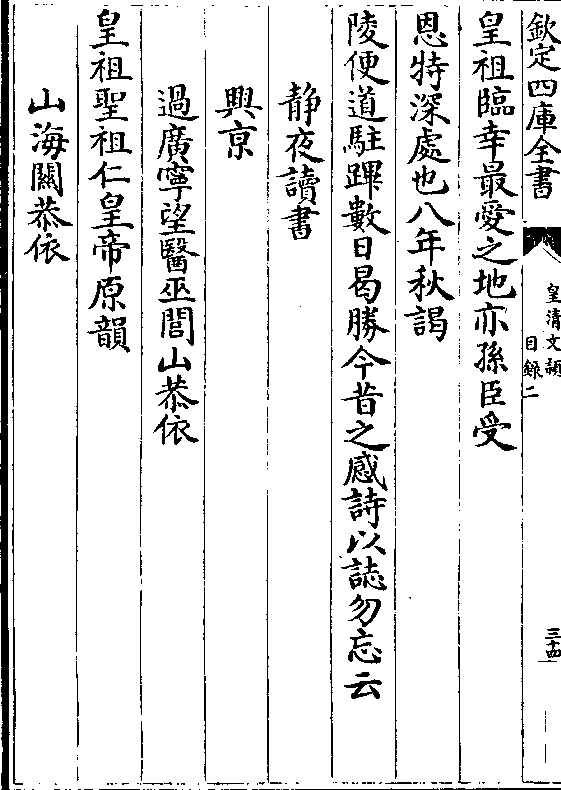 欽定四庫全書
皇清文頴
目録二
三十四
皇祖臨幸最愛之地亦孫臣受
恩特深處也八年秋謁
陵便道駐蹕數日曷勝今昔之感詩以誌勿忘云
静夜讀書
興京
過廣寧望醫巫閭山恭依
皇祖聖祖仁皇帝原韻
山海關恭依